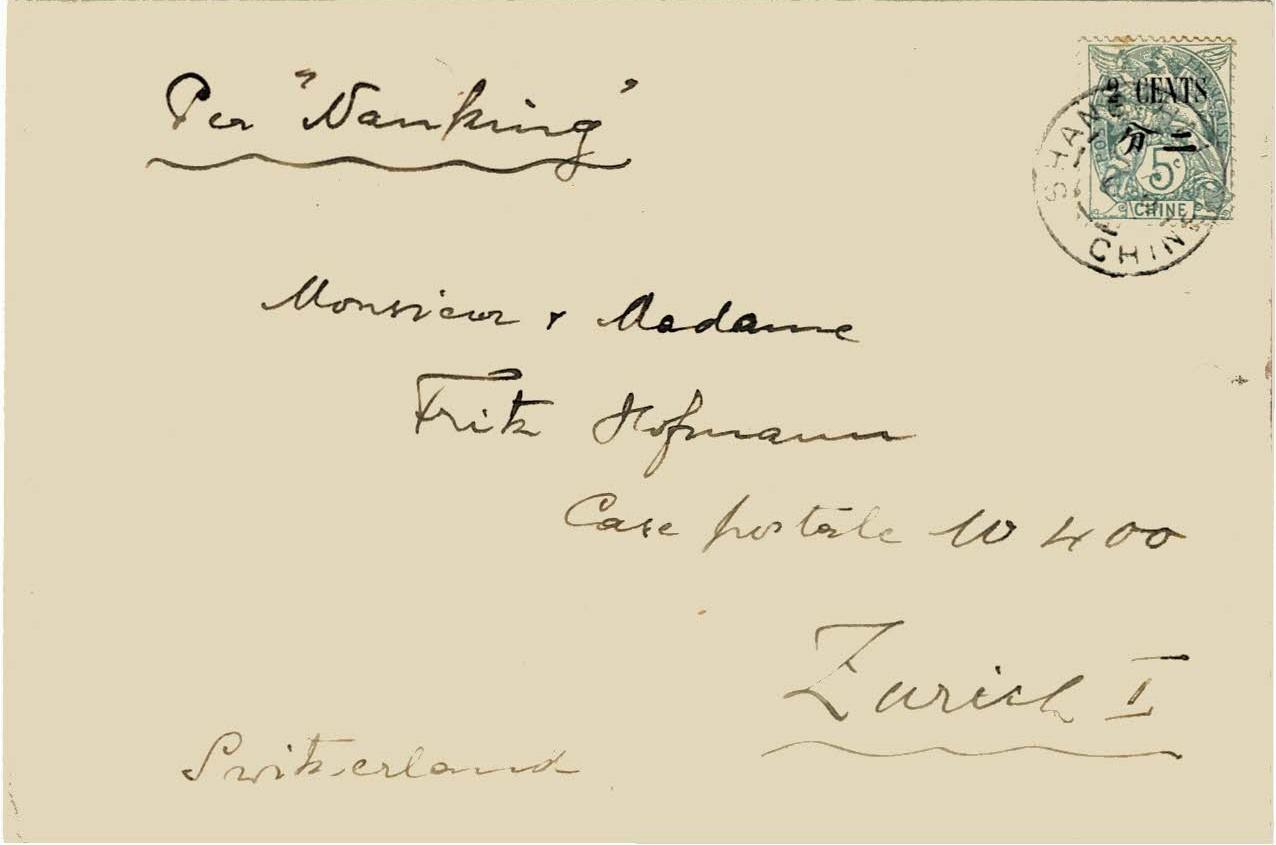 Per "Nanking"
2 CENTS
分二
5c
CHINE
SHANG HAI
CHINE
Monsieur & Madame
Fritz Hofmann
Case postale 10 400
Zurich I
Switzerland